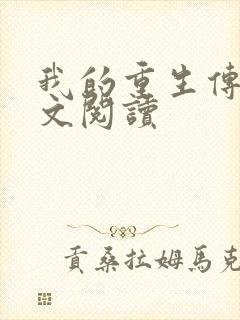 我的重生傳
文閱讀
貢桑拉姆馬克